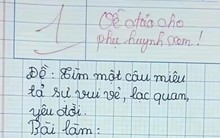 1
Về đưa cho
phụ huynh xem!
Đề: Tìm một câu miêu
tả sự vui vẻ, lạc quan,
yêu đời.
Bài làm: